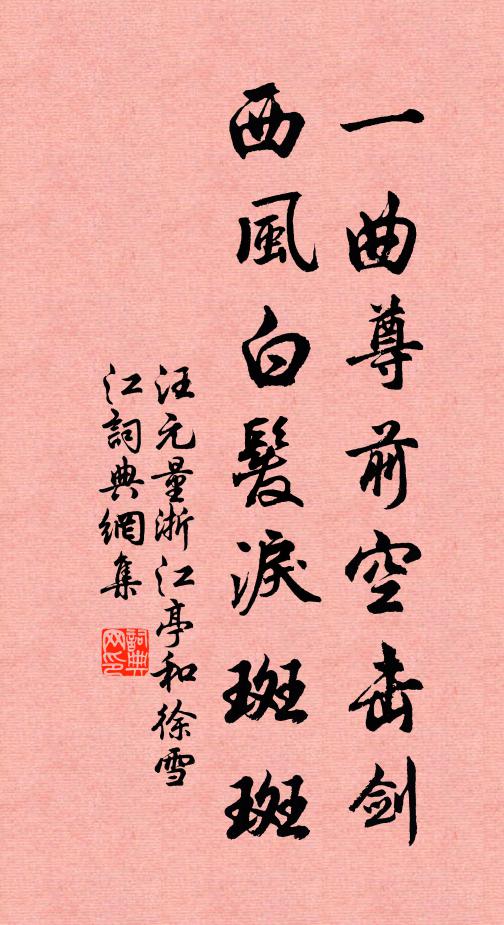 一曲尊前空击剑
西風白髮淚斑斑
汪元量浙江亭和徐雪
江詞典網集
詞典网印